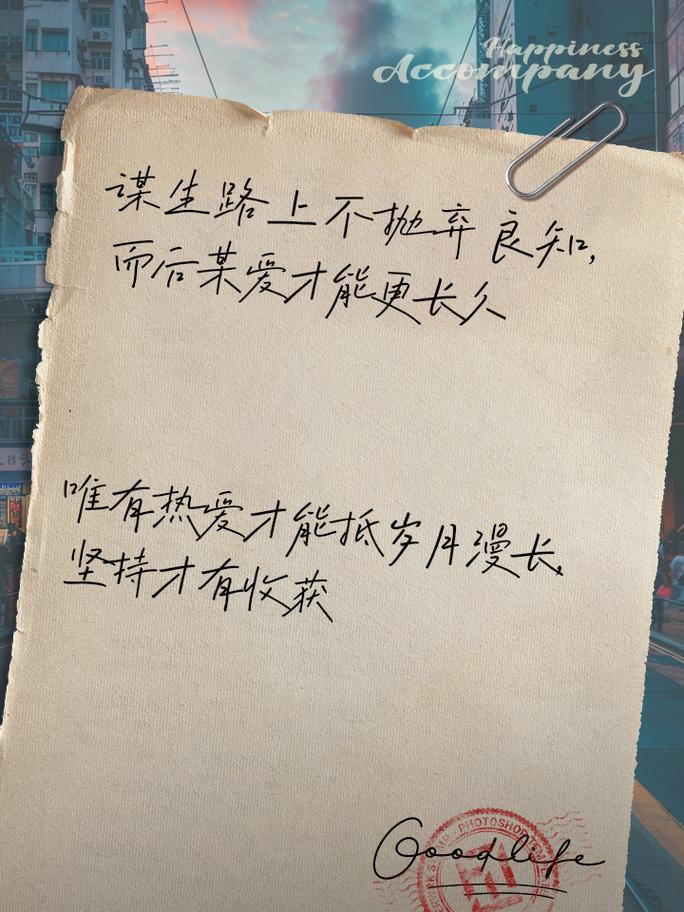 Happiness
Accompany
谋生路上不抛弃良知,
而后某爱才能更长久
唯有热爱才能抵岁月漫长,
坚持才有收获
PHOTOSHOP
Goodlife